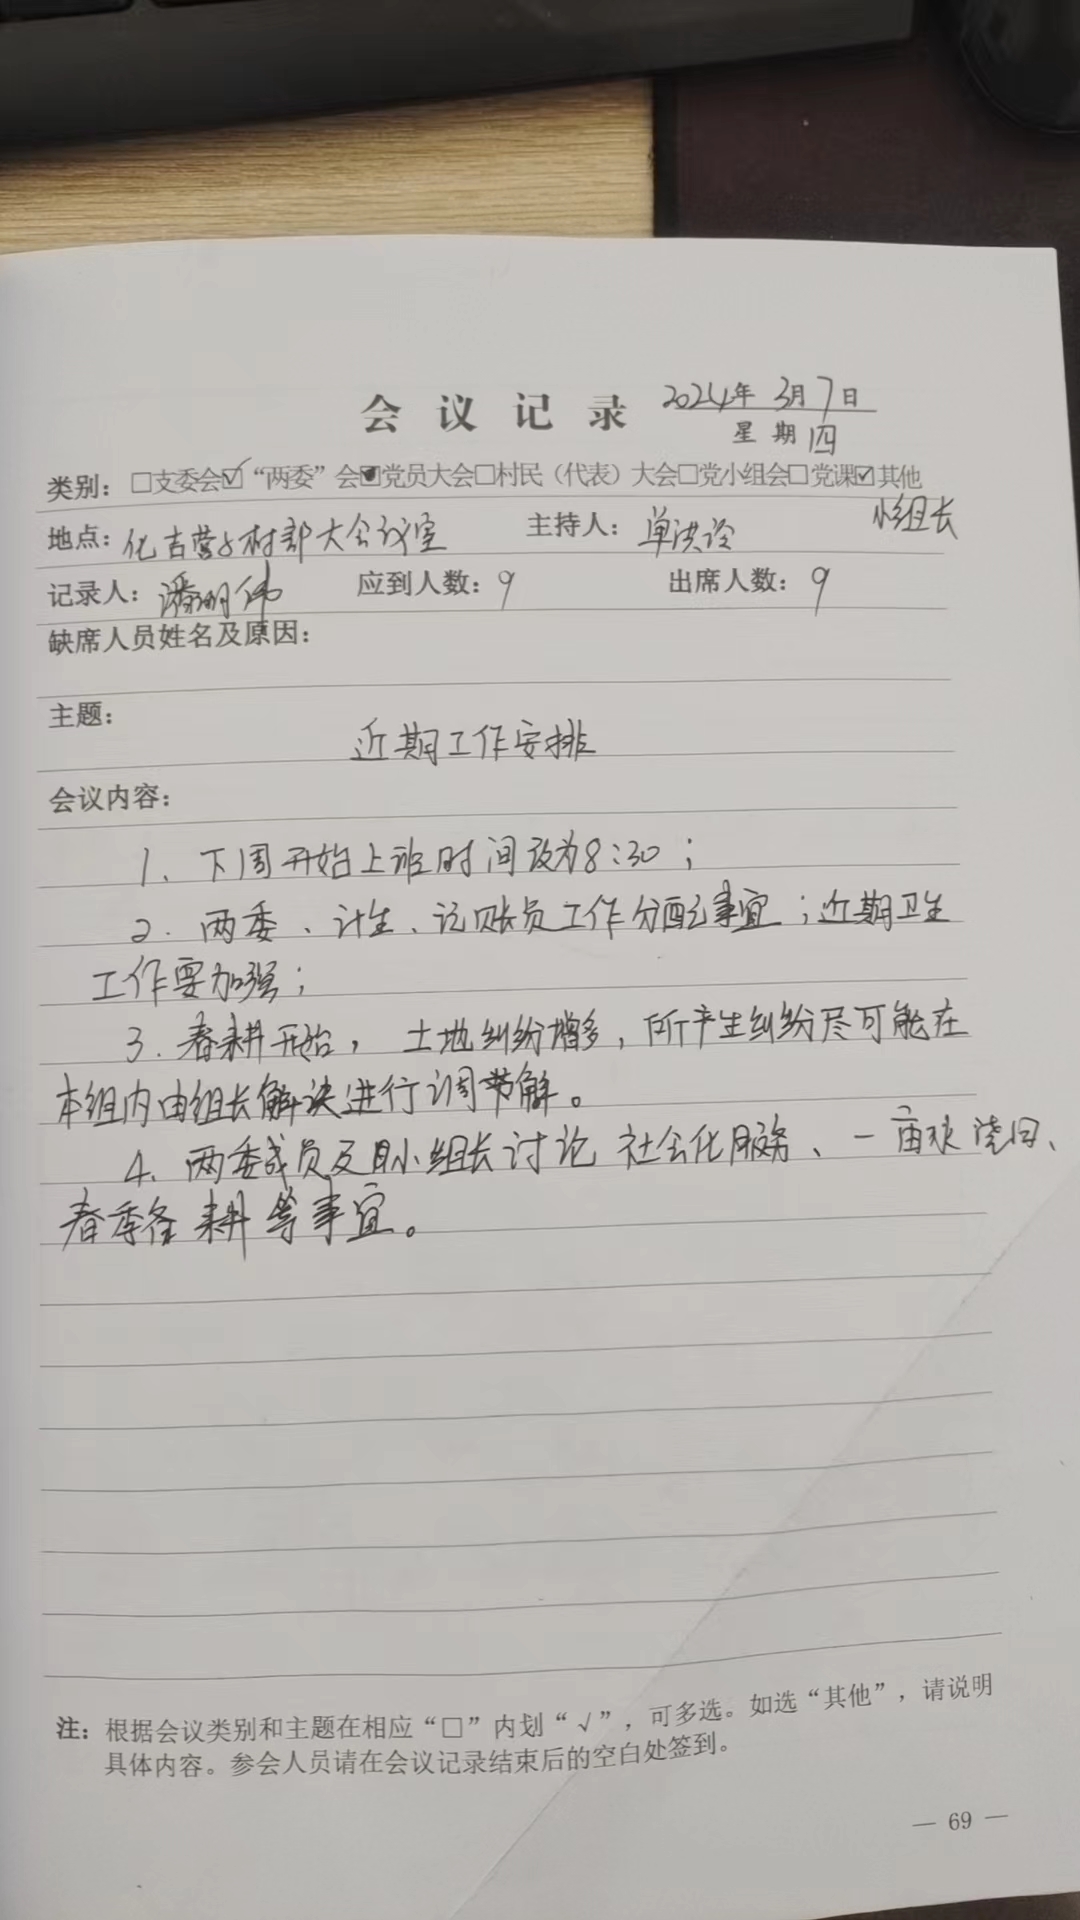 会议记录 2024年3月7日
星期四
类别：□支委会☑“两委”会■党员大会□村民（代表）大会□党小组会□党课☑其他
小组长
地点：化吉营子村部大会议室 主持人：单洪
记录人：潘明伟 应到人数：9 出席人数：9
缺席人员姓名及原因：
主题：
近期工作安排
会议内容：
1、下周开始上班时间改为8:30；
2.两委、计生、记账员工作分配事宜；近期卫生
工作要加强；
3.春耕开始，土地纠纷增多，所产生纠纷尽可能在
本组内由组长解决进行调节解。
4.两委成员及小组长讨论社会化服务、一亩浇园、
春季备耕等事宜。
注：根据会议类别和主题在相应“□”内划“√”，可多选。如选“其他”，请说明
具体内容。参会人员请在会议记录结束后的空白处签到。
— 69 —